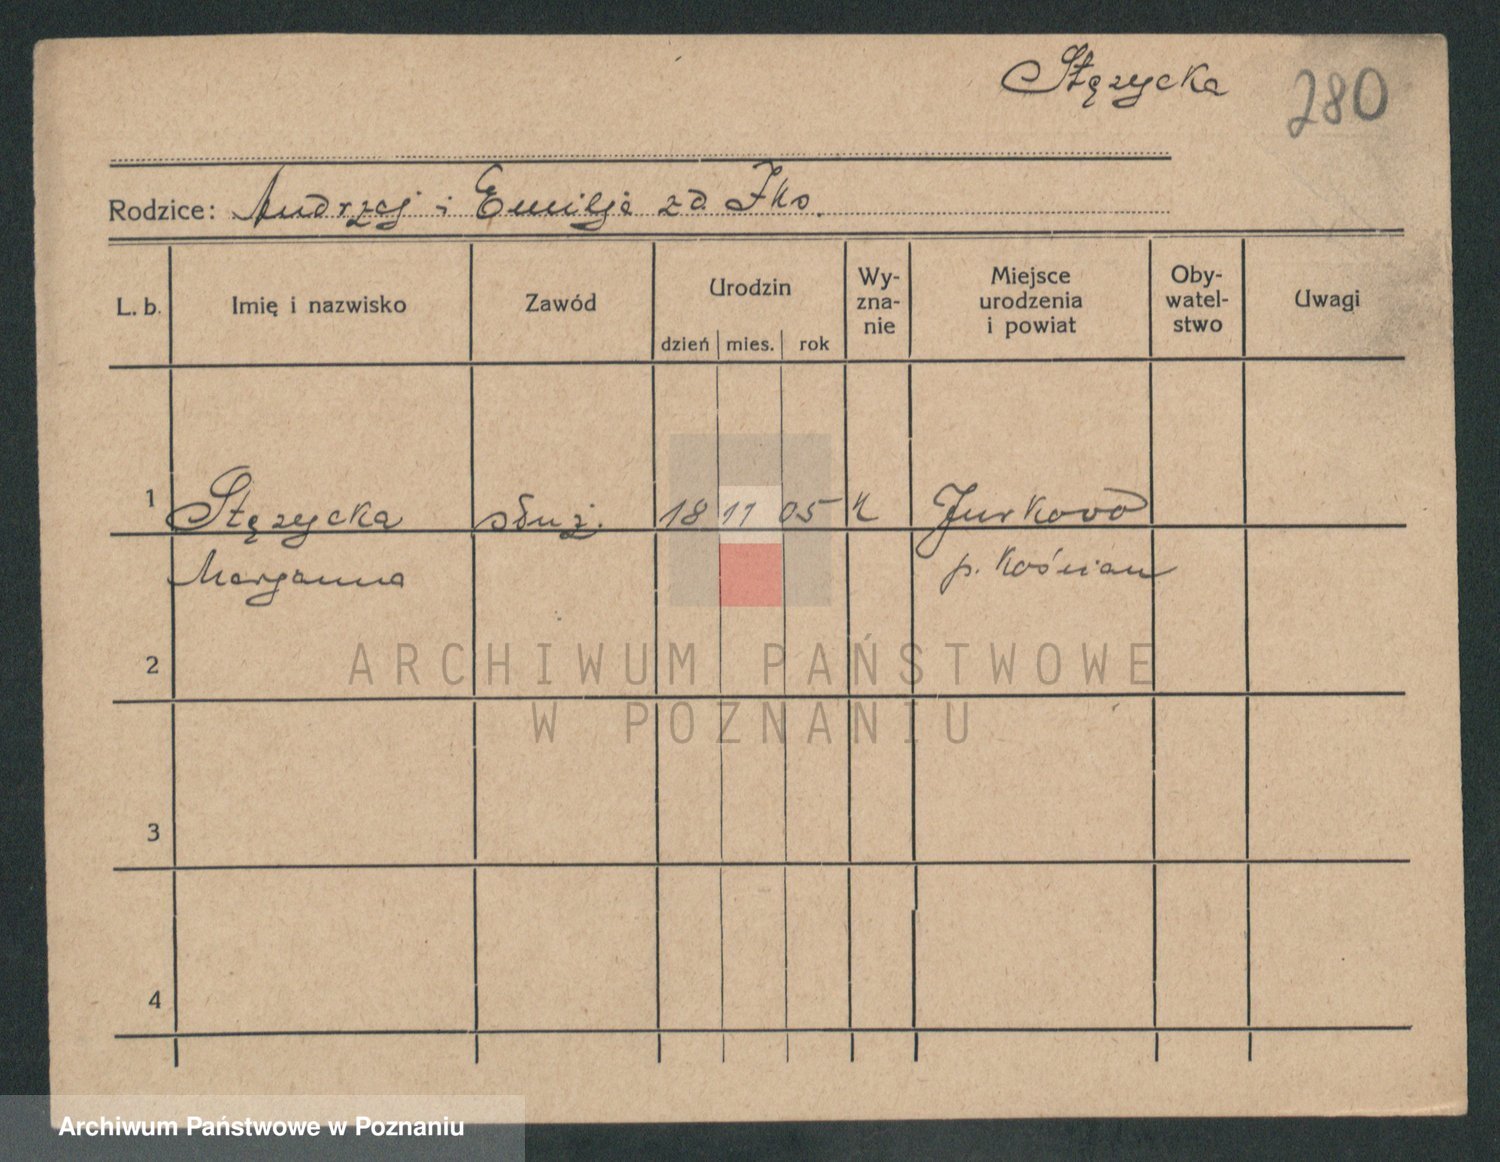 Stęzycka
280
Rodzice: Andrzej i Emilja zd. Iks.
L. b. Imię i nazwisko Zawód Urodzin dzień mies. rok Wy-zna-nie Miejsce urodzenia i powiat Oby-watel-stwo Uwagi
1 Stęzycka służ. 18 11 05 k Jurkowo
Marjanna p. Kościan
2
ARCHIWUM PAŃSTWOWE
W POZNANIU
3
4
Archiwum Państwowe w Poznaniu